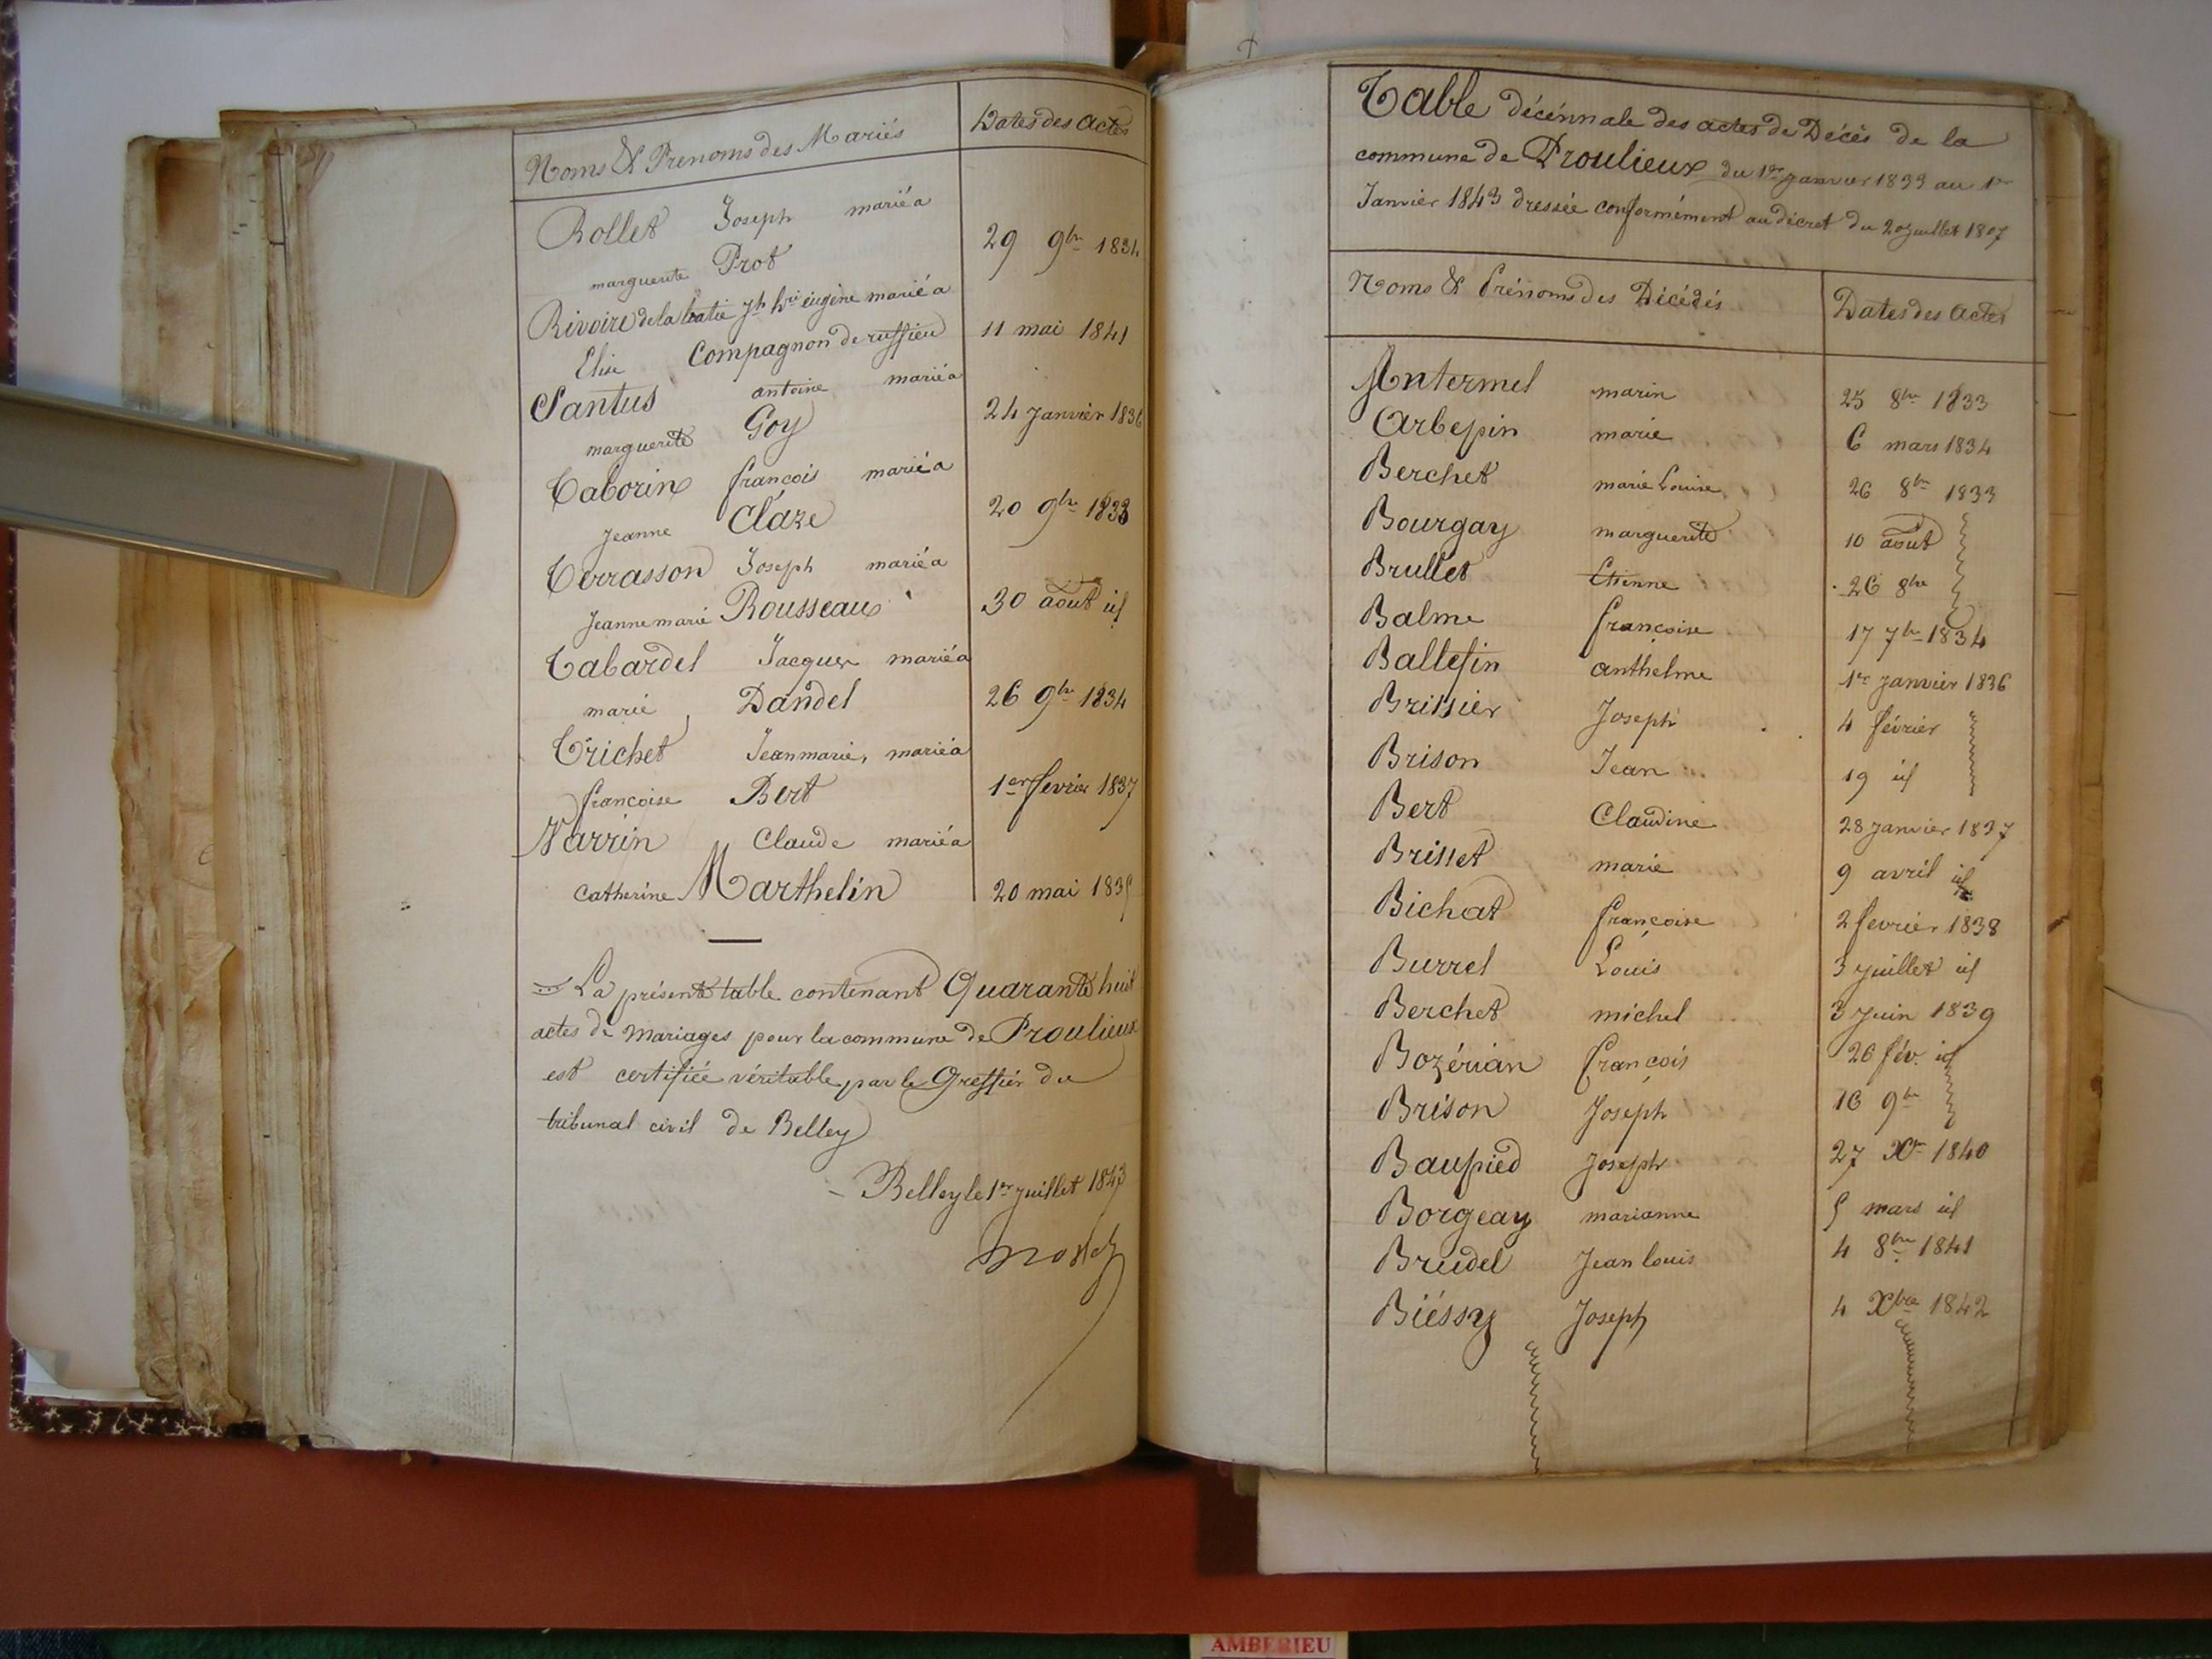 Noms & Prenoms des Mariés Dates des Actes
Rollet Joseph marié a
marguerite Prot 29 9bre 1834
Rivoire de la batie jh hri eugène marié a
Elise Compagnon de ruffieu 11 mai 1841
Santus antoine marié a
marguerite Goy 24 Janvier 1836
Taborin françois marié a
Jeanne Claze 20 9bre 1833
Terrasson Joseph marié a
Jeanne marie Rousseau 30 août id
Tabardel Jacques marié a
marie Dandel 26 9bre 1834
Trichet Jean marie, marié a
francoise Bert 1er fevrier 1837
Varrin Claude marié a
Catherine Marthelin 20 mai 1835
La présente table contenant Quarante huit
actes de Mariages pour la commune de Proulieux
est certifiée véritable par le Greffier du
tribunal civil de Belley
Belley le 1er juillet 1843
Table décénnale des actes de Décès de la
commune de Proulieux du 1er janvier 1833 au 1er
Janvier 1843 dressée conformément au décret du 20 juillet 1807
Noms & Prénoms des Décédés Dates des Actes
Antermet marin 25 8bre 1833
Arbepin marie 6 mars 1834
Berchet marie Louise 26 8bre 1833
Bourgay marguerite 10 août
Brullet Etienne 26 8bre
Balme françoise 17 7bre 1834
Ballefin anthelme 1er janvier 1836
Brissier Joseph 4 février
Brison Jean 19 id
Bert Claudine 28 janvier 1837
Brisset marie 9 avril id
Bichat françoise 2 fevrier 1838
Burrel Louis 3 juillet id
Berchet michel 3 Juin 1839
Bozérian françois 26 fév. id
Brison Joseph 16 9bre
Baupied Joseph 27 Xbre 1840
Borgeay marianne 5 mars id
Breudel Jean louis 4 8bre 1841
Biéssy Joseph 4 Xbre 1842
AMBERIEU